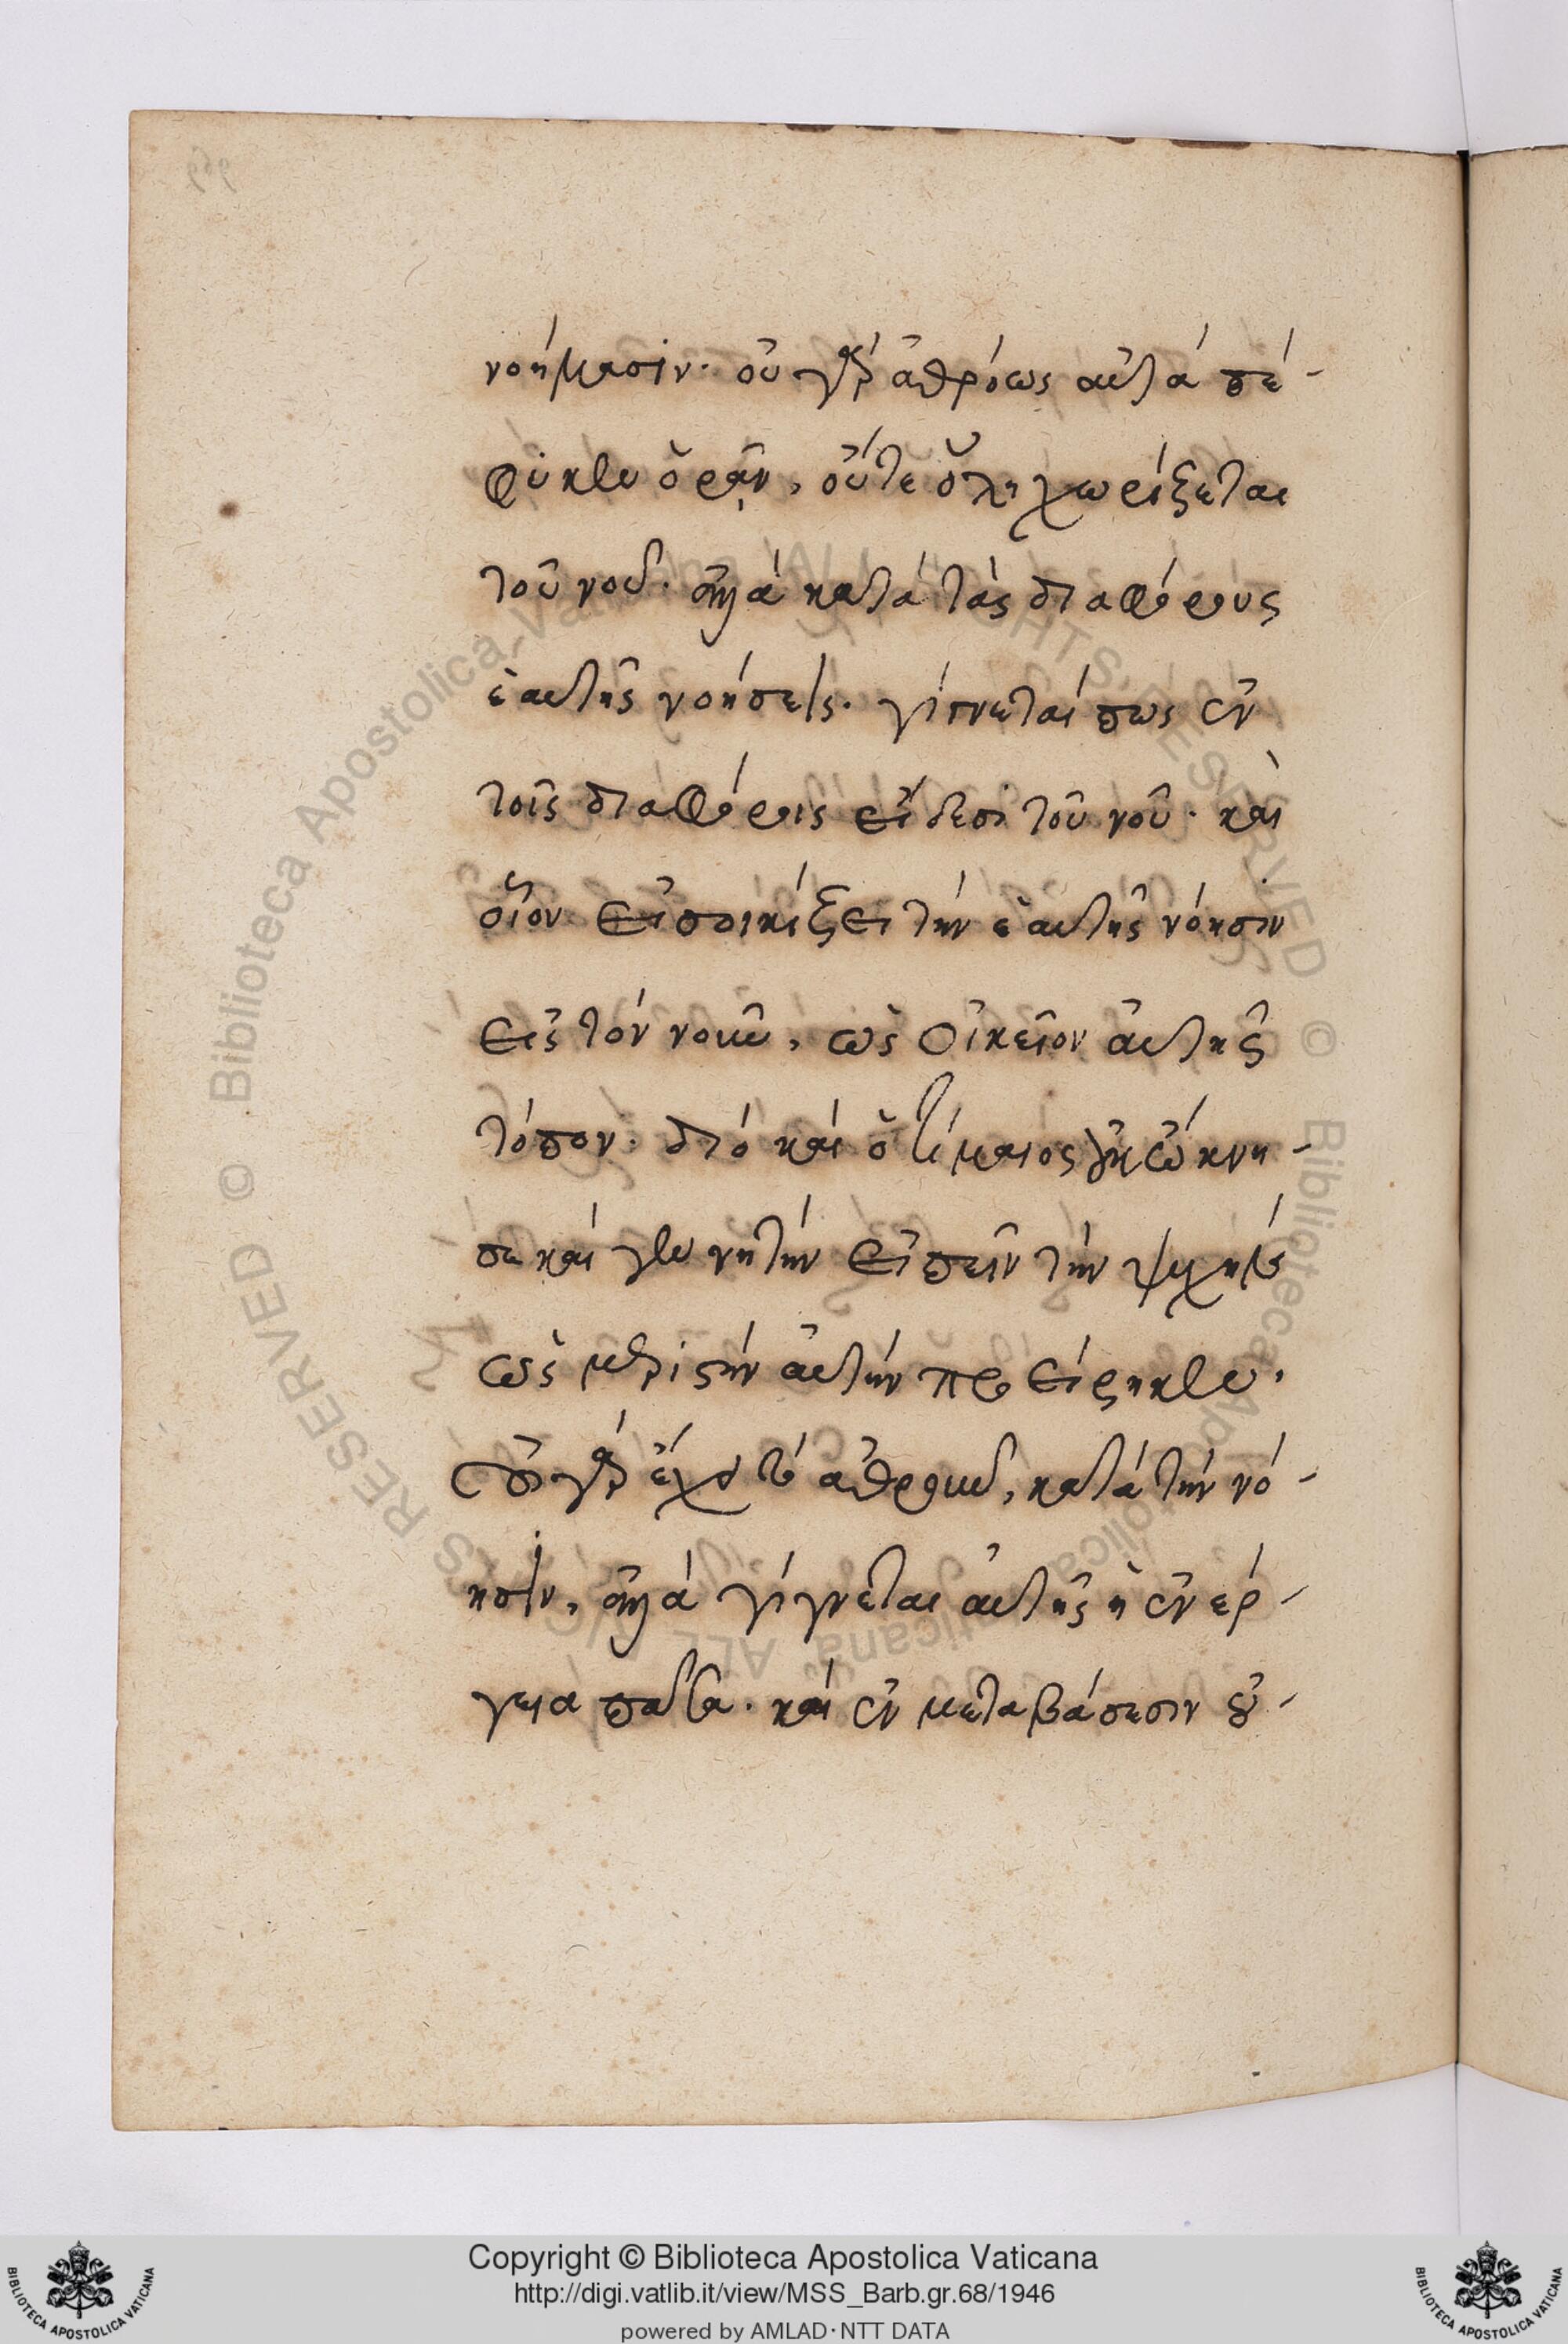 νοήμασιν. οὐ γὰρ ἀθρόως αὐτὰ πέ-
φυκεν ὁρᾷν, οὔτε ὅλη χωρίζεται
τοῦ νοῦ. ἀλλὰ κατὰ τὰς διαφόρους
ἑαυτῆς νοήσεις. γίγνεταί πως ἐν
τοῖς διαφόροις εἴδεσι τοῦ νοῦ. καὶ
οἷον εἰσοικίζει τὴν ἑαυτῆς νόησιν
εἰς τὸν νοῦν, ὡς οἰκεῖον αὐτῆς
τόπον. διὸ καὶ ὁ τίμαιος οὐκ ὤκνη-
σε καὶ γεννητὴν εἰπεῖν τὴν ψυχὴν
ὡς μεριστὴν αὐτὴν προείρηκεν.
οὐ γὰρ ἔχουσα τὸ ἀθρόον, κατὰ τὴν νό-
ησιν, ἀλλὰ γίγνεται αὐτῆς ἡ ἐνέρ-
γεια πᾶσα. καὶ ἐν μεταβάσεσιν οὐ-
Copyright © Biblioteca Apostolica Vaticana
http://digi.vatlib.it/view/MSS_Barb.gr.68/1946
powered by AMLAD·NTT DATA
BIBLIOTECA APOSTOLICA VATICANA
BIBLIOTECA APOSTOLICA VATICANA